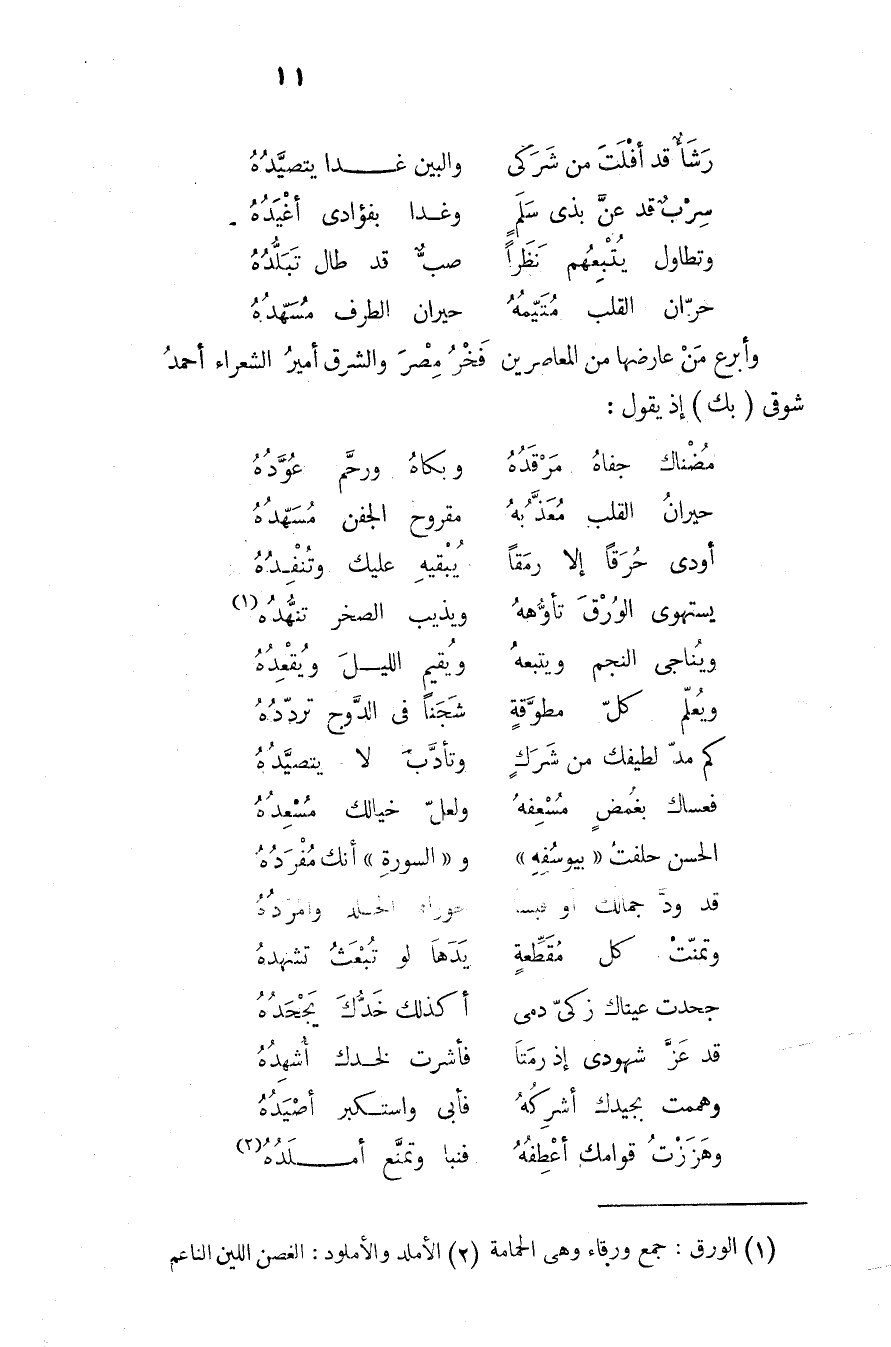 ١١
رَشَأٌ قد أفْلَتَ من شَرَكى والبين غـــدا يتصيَّدُهُ
سِرْبٌ قد عنَّ بذى سَلَمٍ وغـدا بفؤادى أغْيَدُهُ
وتطاول يُتْبِعُهم نَظَراً صبٌّ قد طال تَبَلُّدُهُ
حرّان القلب مُتَيّمهُ حيران الطرف مُسَهّدُهُ
وأبرع مَنْ عارضها من المعاصرين فَخْرُ مِصْرَ والشرق أميرُ الشعراء أحمدُ
شوقى ( بك ) إذ يقول :
مُضْناك جفاهُ مَرْقَدُهُ وبكاهُ ورحَّم عُوَّدُهُ
حيرانُ القلب مُعَذَّبهُ مقروح الجفن مُسَهّدُهُ
أودى حُرَقاً إلا رمَقاً يُبْقيهِ عليك وتُنْفِـدُهُ
يستهوى الوُرْقَ تأوُّههُ ويذيب الصخر تنهُّدُهُ (١)
ويُناجى النجم ويتبعهُ ويُقيم الليـلَ ويُقْعِدُهُ
ويُعلّم كلّ مطوَّقةٍ شَجَناً فى الدَّوح تردّدُهُ
كم مدّ لطيفك من شَرَكٍ وتأدَّبَ لا يتصيَّدُهُ
فعساك بغُمضٍ مُسْعِفهُ ولعلّ خيالك مُسْعِدُهُ
الحسن حلفتُ « بيوسُفِهِ » و « السورةِ » أنك مُفْرَدُهُ
قد ودَّ جمالك أو قبسا حوراء الخـلد وأمْرَدُهُ
وتمنّتْ كل مُقَطِّعةٍ يَدَهَا لو تُبْعَثُ تشهدهُ
جحدت عيناك زكىّ دمى أكذلك خَدُّكَ يَجْحَدُهُ
قد عَزَّ شهودى إذ رمَتَا فأشرت لخدك أُشهِدُهُ
وهممت بجيدك أشرِكُهُ فأبى واستـكبر أصْيَدُهُ
وهَزَزْتُ قوامك أعْطِفُهُ فنبا وتمنَّع أمــلَدُهُ (٢)
(١) الورق : جمع ورقاء وهى الحمامة (٢) الأملد والأملود : الغصن اللين الناعم